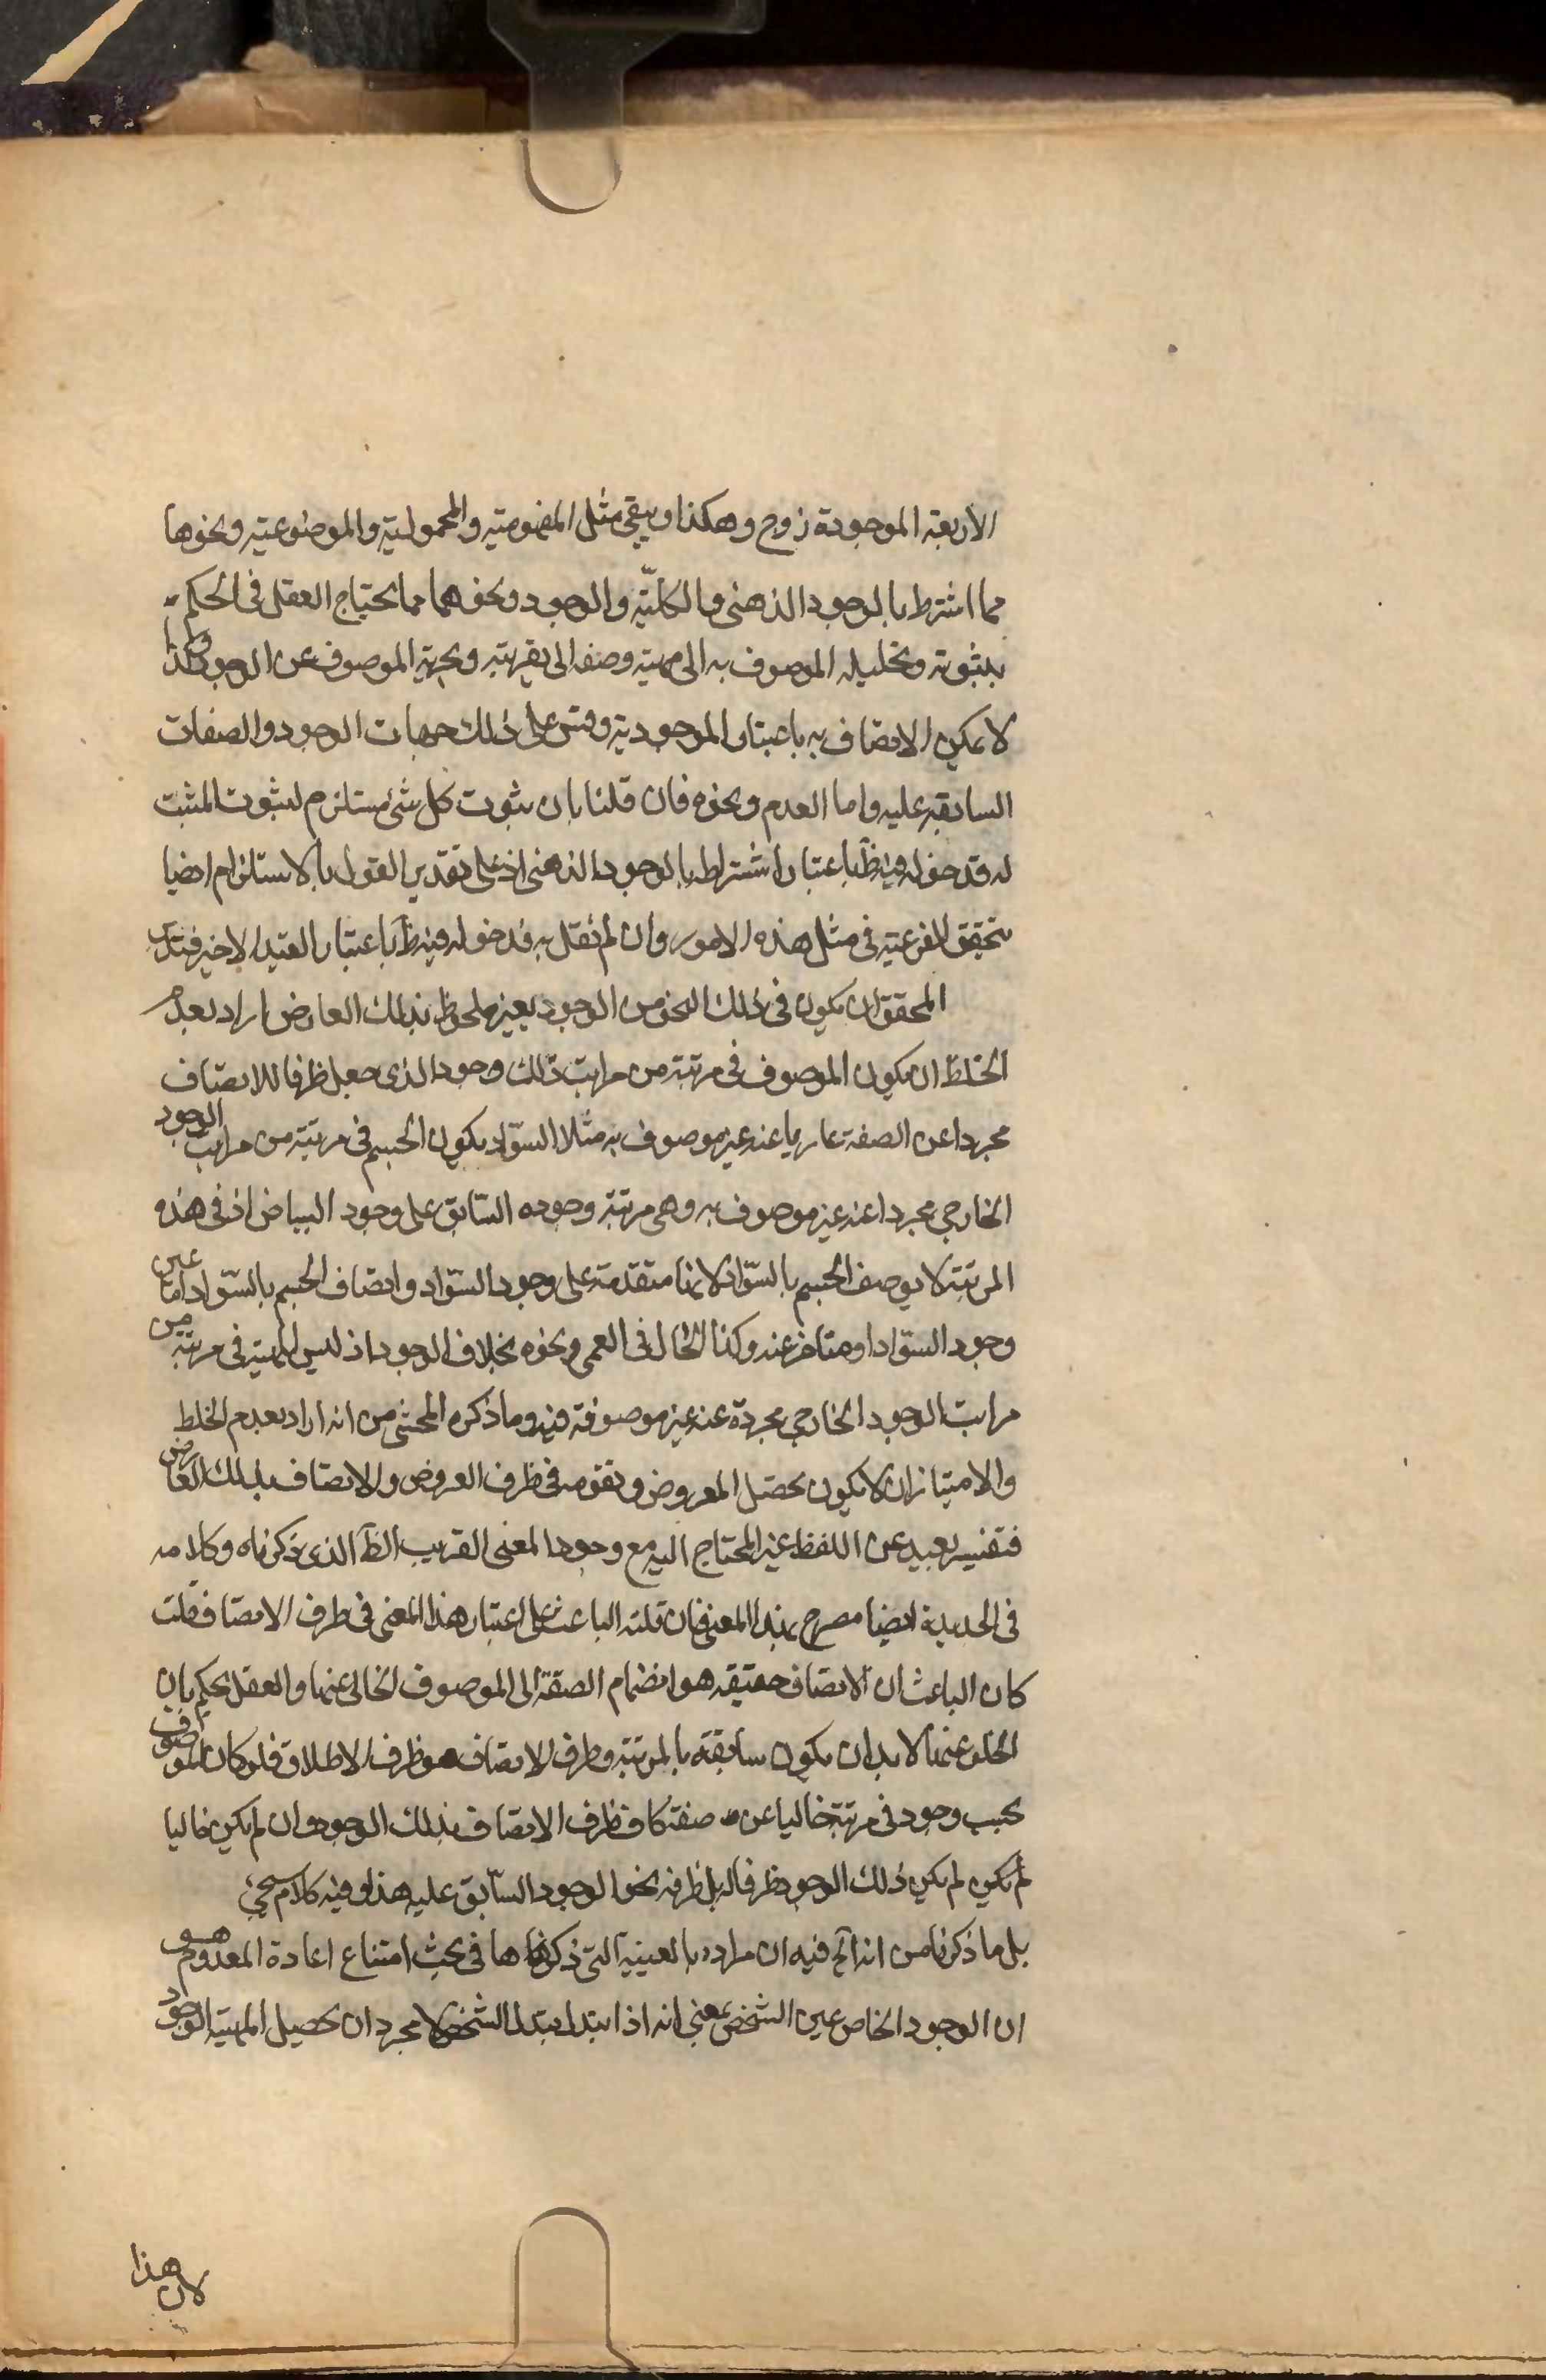 الاربعة الموجودة زوج وهكذا ويبقى مثل المفهومية والمحمولية والموضوعية ونحوها
مما اشترط بالوجود الذهني وبالكلية والوجود ونحوهما مما يحتاج العقل في الحكم
بثبوته وتحليله الموصوف به الى مهية وصفه الى وتجريد الموصوف عن الوجود وكذا
لا يمكن الاتصاف به باعتبار الموجودية وقس على ذلك جهات الوجود والصفات
السابقة عليه واما العدم ونحوه فان قلنا بان ثبوت كل شئ مستلزم لثبوت المثبت
له فدخوله فيه ظ باعتبار اشتراطه بالوجود الذهني اذ على تقدير القول بالاستلزام ايضا
تتحقق الفرعية في مثل هذه الامور وان لم نقل به فدخوله فيه ظ باعتبار القيد الاخير فتدبر
المحقق ان يكون في ذلك النحو من الوجود بعينه ملحوظ بذلك العارض اراد بعدم
الخلط ان يكون الموصوف في مرتبة من مراتب ذلك وجود الذي جعل ظرفا للاتصاف
مجردا عن الصفة عاريا عنه غير موصوف به مثلا السواد يكون الجسم في مرتبة من مراتب الوجود
الخارجي مجردا عنه غير موصوف به وهي مرتبة وجوده السابق على وجود البياض اذ في هذه
المرتبة لا يوصف الجسم بالسواد لانها متقدمة على وجود السواد واتصاف الجسم بالسواد اما عين
وجود السواد او متاخر عنه وكذا الحال في العمى ونحوه بخلاف الوجود اذ ليس المهية في مرتبة من
مراتب الوجود الخارجي مجردة عنه غير موصوفة فيه وما ذكره المحشي من انه اراد بعدم الخلط
والامتياز ان لا يكون تحصل المعروض وتقومه في ظرف العروض والاتصاف بذلك العارض
فتفسير بعيد عن اللفظ غير المحتاج اليه مع وجود المعنى القريب الظ الذي ذكرناه وكلامه
في الجديدة ايضا مصرح بهذا المعنى فان قلت الباعث على اعتبار هذا المعنى في ظرف الاتصاف قلت
كان الباعث ان الاتصاف حقيقة هو انضمام الصفة الى الموصوف الخالي عنها والعقل يحكم بان
الخلو عنها لا بد ان يكون سابقة بالمرتبة وظرف الاتصاف هو ظرف الاطلاق فلو كان الموصوف
بحسب وجود في مرتبة خاليا عن صفة كان ظرف الاتصاف بذلك الوجود وان لم يكن خاليا
لم يكن لم يكن ذلك الوجود ظرفا له بل ظرفه نحو الوجود السابق عليه هذا وفيه كلام سيجئ
بل ما ذكرنا من انه الخ فيه ان مراده بالعينية التي ذكرناها في بحث امتناع اعادة المعدوم هو
ان الوجود الخاص عين الشخص بمعنى انه اذا تبدل تبدل الشخص لا مجرد ان تحصيل المهية الوجود
لان هذا